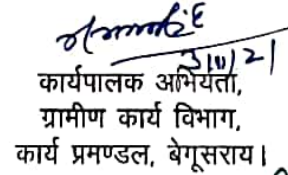 3/11/21
कार्यपालक अभियंता,
ग्रामीण कार्य विभाग,
कार्य प्रमण्डल, बेगूसराय।